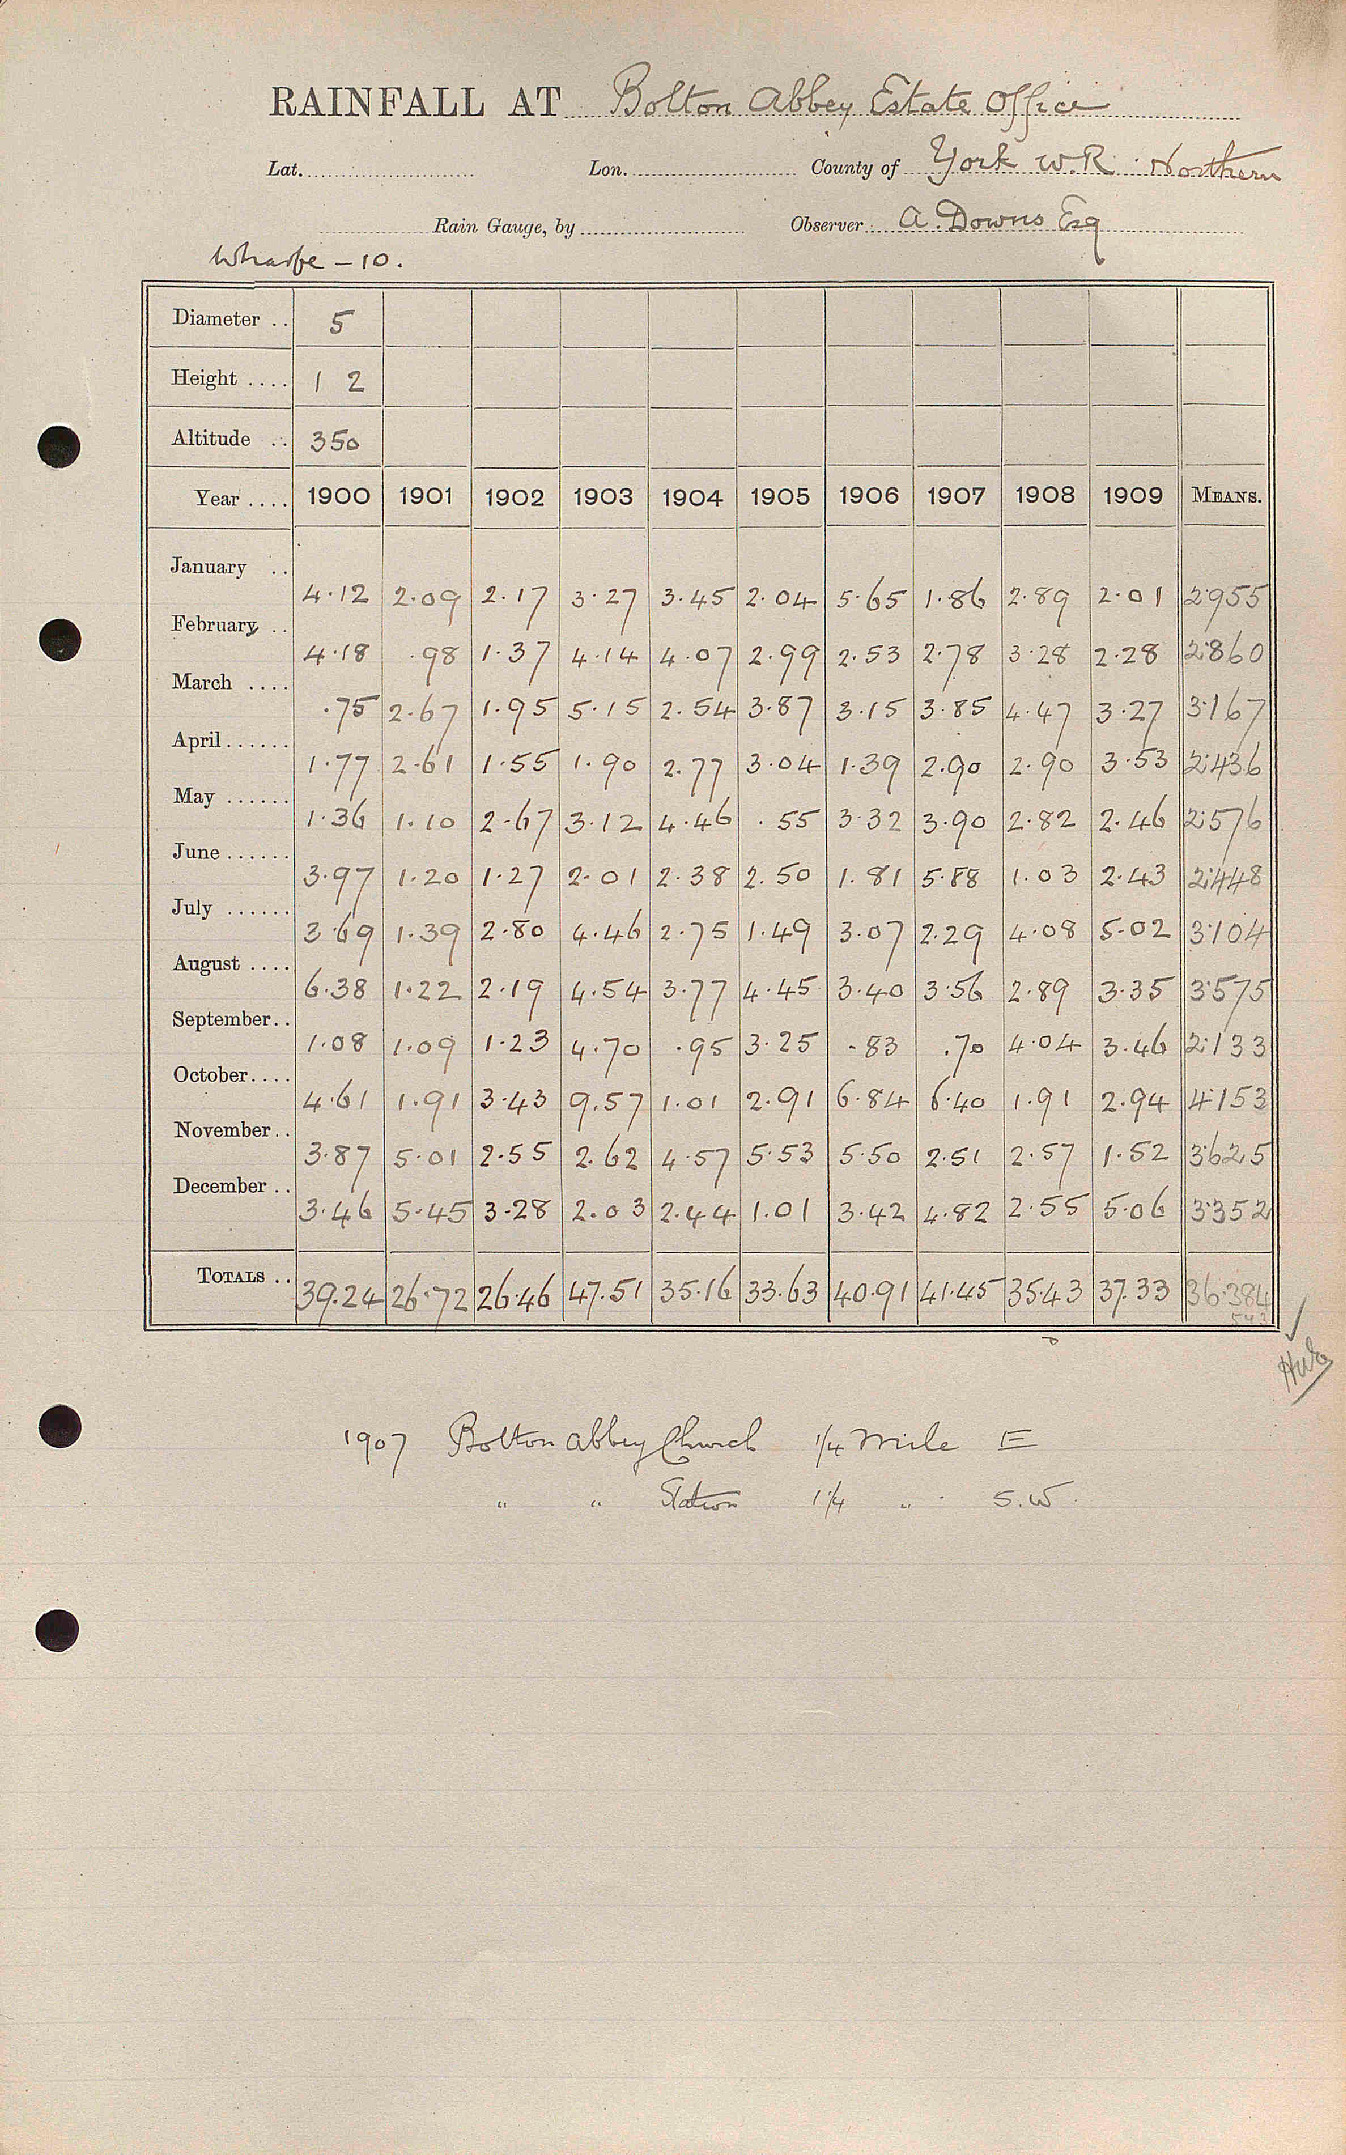 RAINFALL AT Bolton Abbey Estate Office
Lat. Lon. County of York W.R. Northern
Rain Gauge, by Observer A. Downs Esq
Wharfe - 10.
Diameter .. 5
Height .... 1 2
Altitude .. 350
Year .... 1900 1901 1902 1903 1904 1905 1906 1907 1908 1909 MEANS.
January .. 4.12 2.09 2.17 3.27 3.45 2.04 5.65 1.86 2.89 2.01 2.955
February .. 4.18 .98 1.37 4.14 4.07 2.99 2.53 2.78 3.28 2.28 2.860
March .... .75 2.67 1.95 5.15 2.54 3.87 3.15 3.85 4.47 3.27 3.167
April ...... 1.77 2.61 1.55 1.90 2.77 3.04 1.39 2.90 2.90 3.53 2.436
May ...... 1.36 1.10 2.67 3.12 4.46 .55 3.32 3.90 2.82 2.46 2.576
June ...... 3.97 1.20 1.27 2.01 2.38 2.50 1.81 5.88 1.03 2.43 2.448
July ...... 3.69 1.39 2.80 4.46 2.75 1.49 3.07 2.29 4.08 5.02 3.104
August .... 6.38 1.22 2.19 4.54 3.77 4.45 3.40 3.56 2.89 3.35 3.575
September .. 1.08 1.09 1.23 4.70 .95 3.25 .83 .70 4.04 3.46 2.133
October .... 4.61 1.91 3.43 9.57 1.01 2.91 6.84 6.40 1.91 2.94 4.153
November .. 3.87 5.01 2.55 2.62 4.57 5.53 5.50 2.51 2.57 1.52 3.625
December .. 3.46 5.45 3.28 2.03 2.44 1.01 3.42 4.82 2.55 5.06 3.352
TOTALS .. 39.24 26.72 26.46 47.51 35.16 33.63 40.91 41.45 35.43 37.33 36.384
1907 Bolton Abbey Church 1/4 Mile E
" " Station 1 1/4 " S.W.